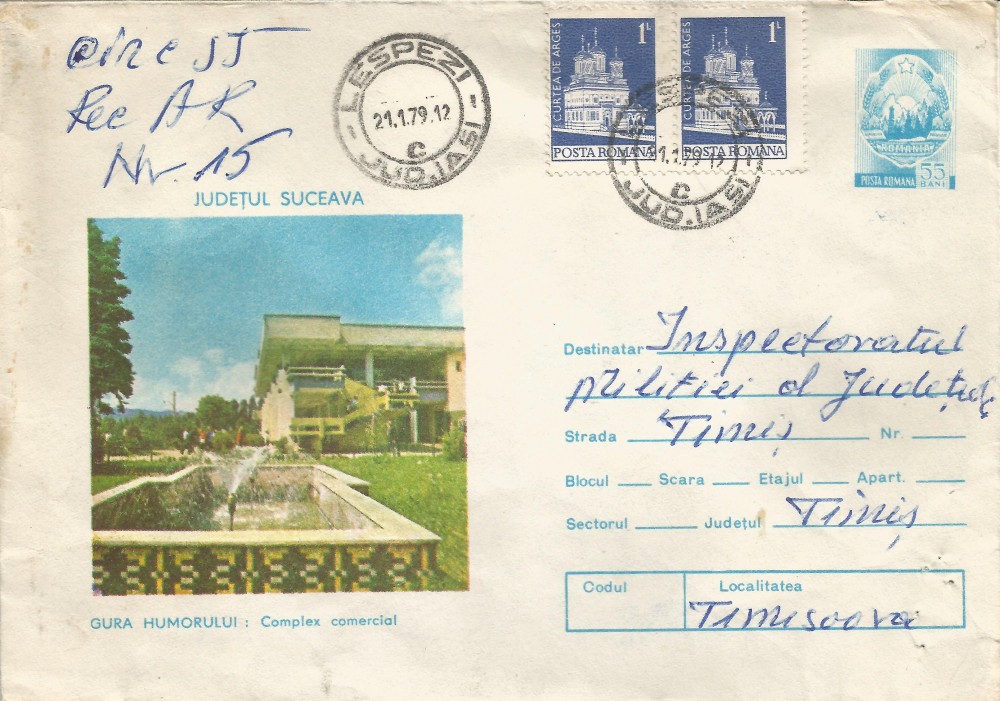 Rec AR
Nr. 15
LESPEZI
21.1.79.12
C
JUD.IAȘI
CURTEA DE ARGEȘ
1L
POSTA ROMANA
CURTEA DE ARGEȘ
1L
POSTA ROMANA
1.1.79.12
C
JUD.IAȘI
ROMANIA
POSTA ROMANA
55
BANI
JUDEȚUL SUCEAVA
GURA HUMORULUI : Complex comercial
Destinatar Inspectoratul
Miliției al Județului
Strada Timiș Nr.
Blocul Scara Etajul Apart.
Sectorul Județul Timiș
Codul Localitatea
Timisoara